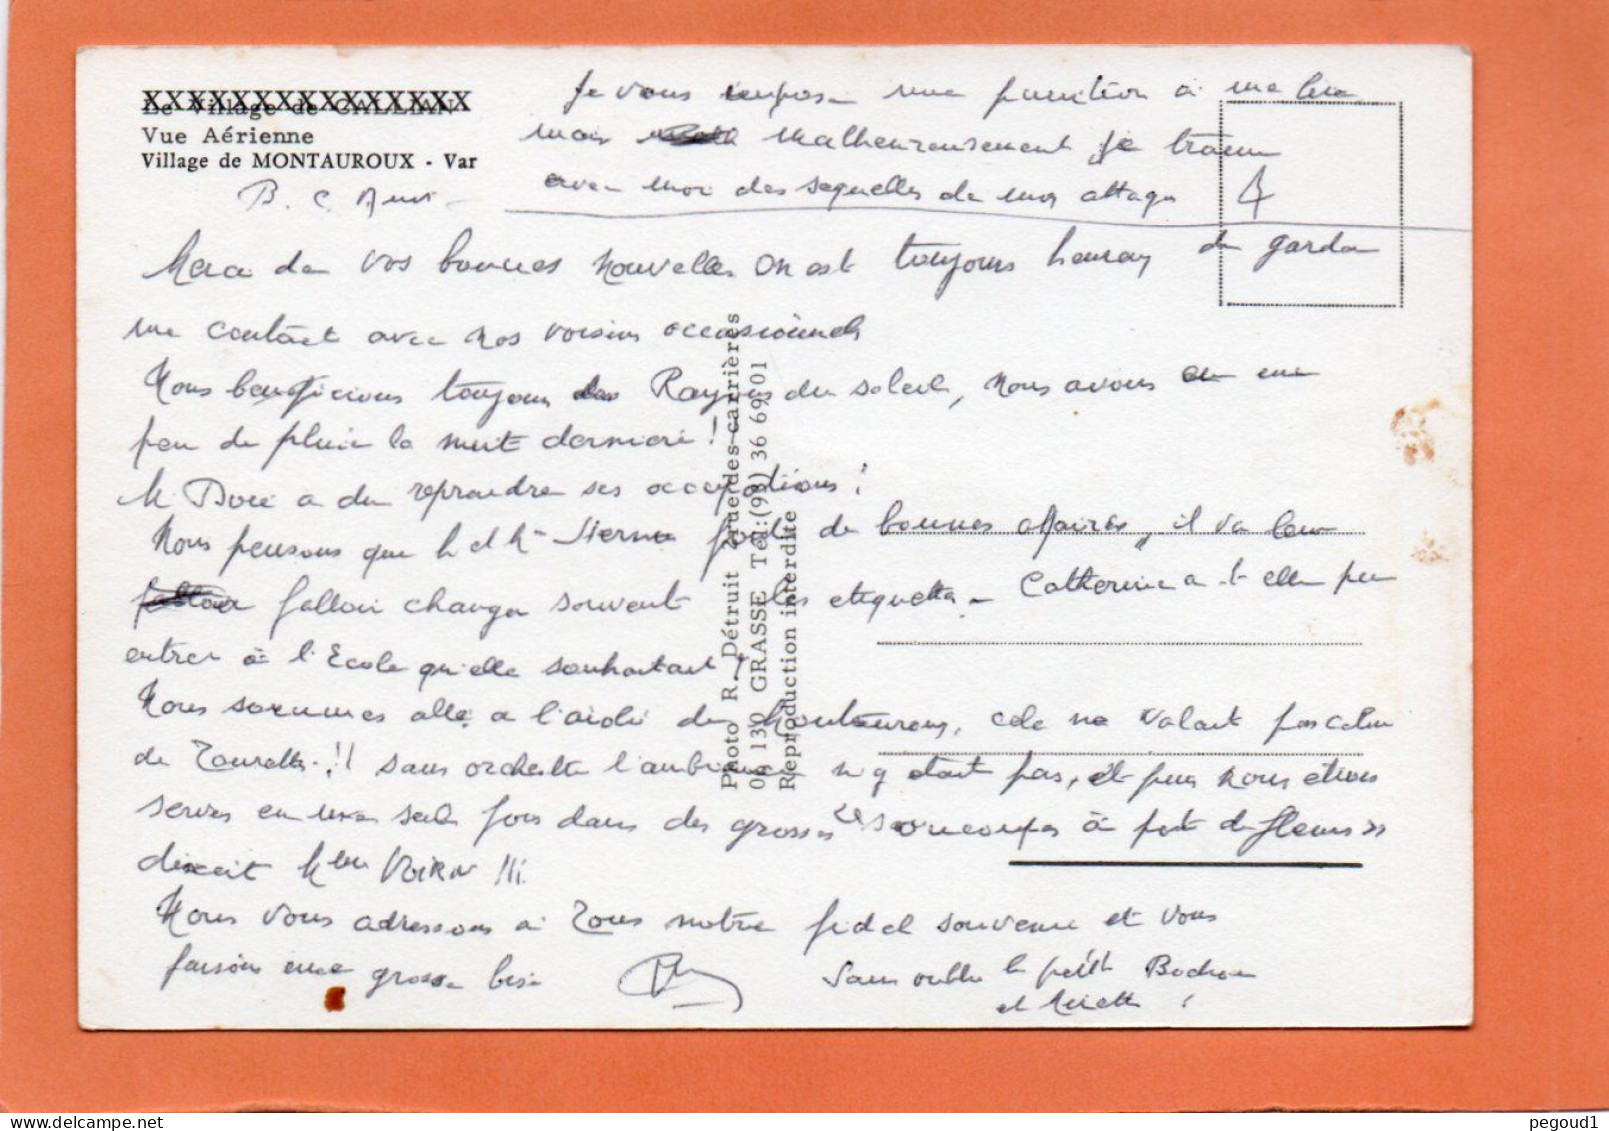 Le Village de CALLIAN
Vue Aérienne
Village de MONTAUROUX - Var
Je vous impose une punition à me lire
mais malheureusement je traine
avec moi des sequelles de mes attaques
B. C Amis
Merci de vos bonnes nouvelles on est toujours heureux de garder
un contact avec nos voisins occasionnels
Nous beneficions toujours des Rayons du soleil, nous avons eu un
peu de pluie la nuit derniere !
M. Doré a du reprendre ses occupations !
Nous pensons que M et Mme font de bonnes affaires, il va leur
falloir changer souvent les etiquettes - Catherine a t elle pu
entrer à l'Ecole qu'elle souhaitait ?
Nous sommes allé a l'aioli de Montauroux, cela ne valait pas celui
de Tourettes !! sans orchestre l'ambiance n'y etait pas, et puis nous étions
servis en une seule fois dans des grosses "soucoupes à pot de fleurs"
disait Mme !!!
Nous vous adressons à Tous notre fidel souvenir et vous
faisons une grosse bise
sans oublier le petit
et !
Photo R. Détruit 2 rue des carrières
06 130 GRASSE Tél:(93) 36 69 01
Reproduction interdite
pegoud1